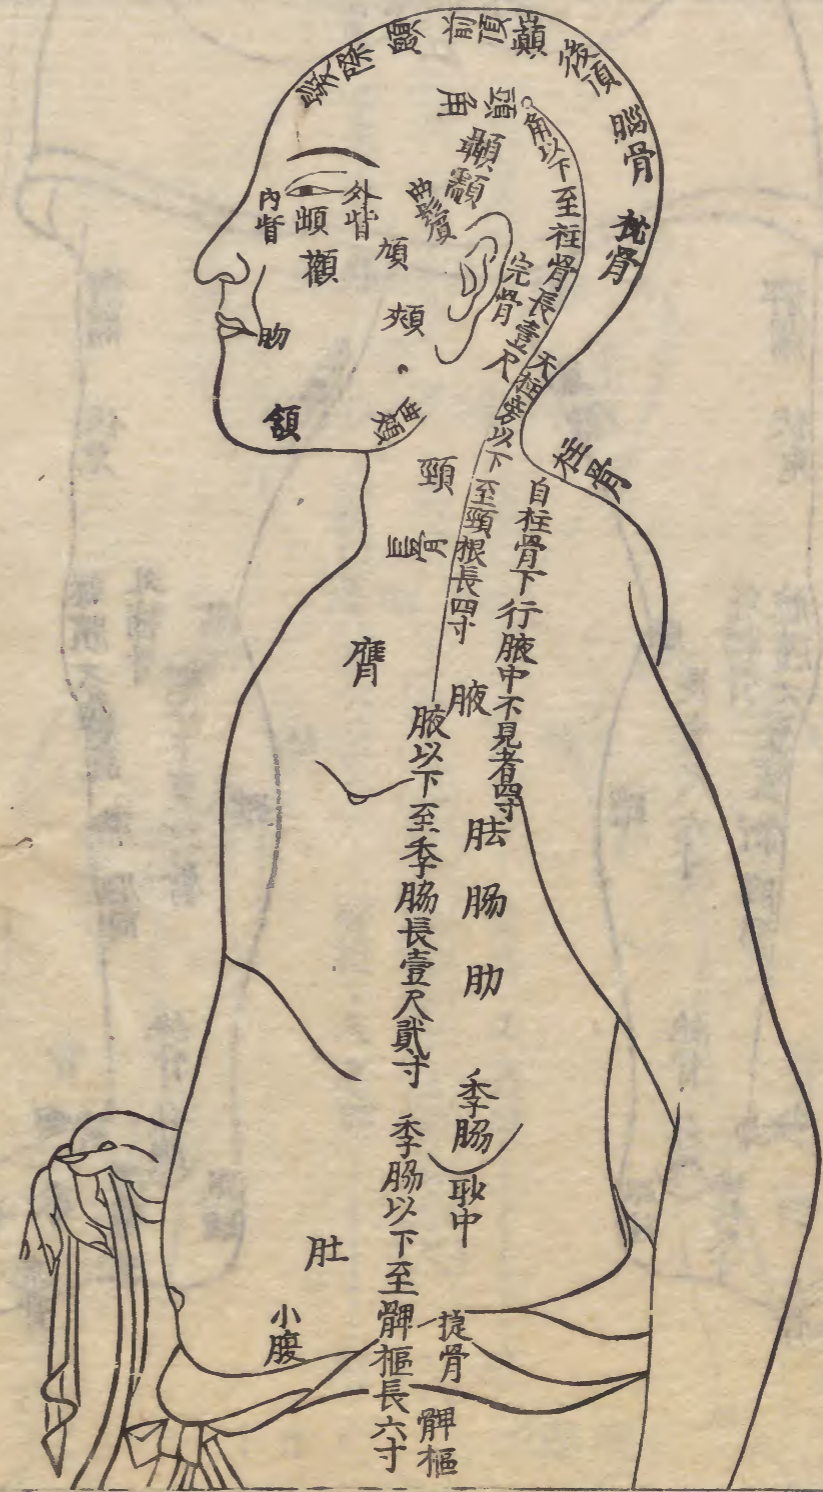 髮際
顖
前頂
巔
後頂
腦骨
枕骨
頭角
顳顬
曲鬢
內眥
外眥
䪼
顴
䪼
頰
吻
頷
曲頰
角以下至柱骨長壹尺
完骨
天柱旁以下至頸根長四寸
柱骨
頸
肩
自柱骨下行腋中不見者四寸
膺
腋
腋以下至季脇長壹尺貳寸
胠
脇
肋
季脇
䏚中
季脇以下至髀樞長六寸
肚
小腹
揵骨
髀樞